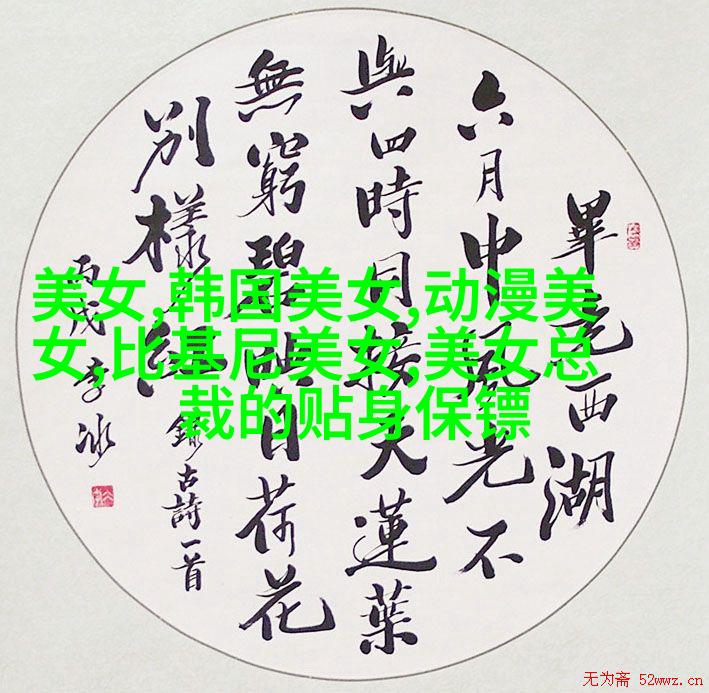 畢竟西湖
六月中風光不
與四時同接天蓮葉
無窮碧映日荷花
別樣紅
錄古詩一首
丙戌 李冰
美女,韩国美女,动漫美
女,比基尼美女,美女总
裁的贴身保镖
无为斋 52wwz.cn